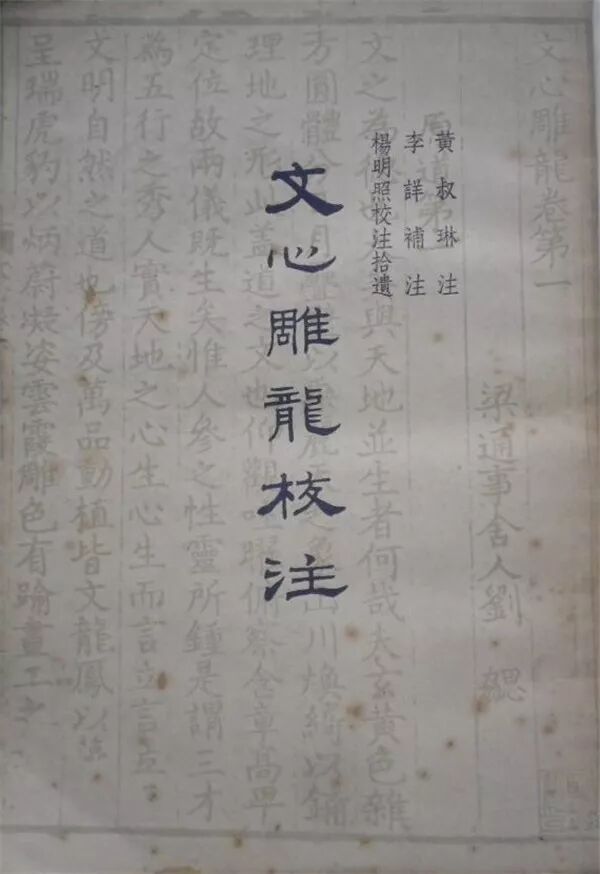 文心雕龍卷第一
梁通事舍人劉勰
原道第
黃叔琳注
李詳補注
楊明照校注拾遺
文心雕龍校注
文之為 也 與天地並生者何哉夫玄黃色雜
方圓體 月 以 山川煥綺以鋪
理地之形此蓋道之文也仰觀吐曜俯察含章高卑
定位故兩儀既生矣惟人參之性靈所鍾是謂三才
為五行之秀人實天地之心生心生而言立言立
文明自然之道也傍及萬品動植皆文龍鳳以
呈瑞虎豹以炳蔚凝姿雲霞雕色有踰畫工之